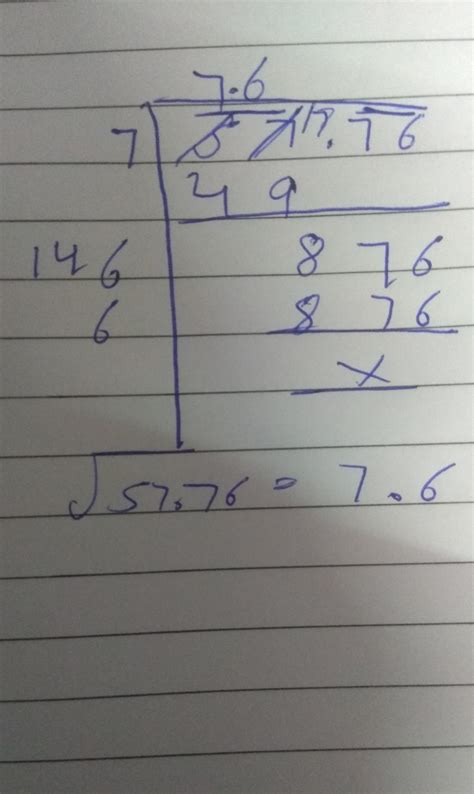 7.6
7 57 17.76
49
146 876
6 876
x
√57.76 = 7.6